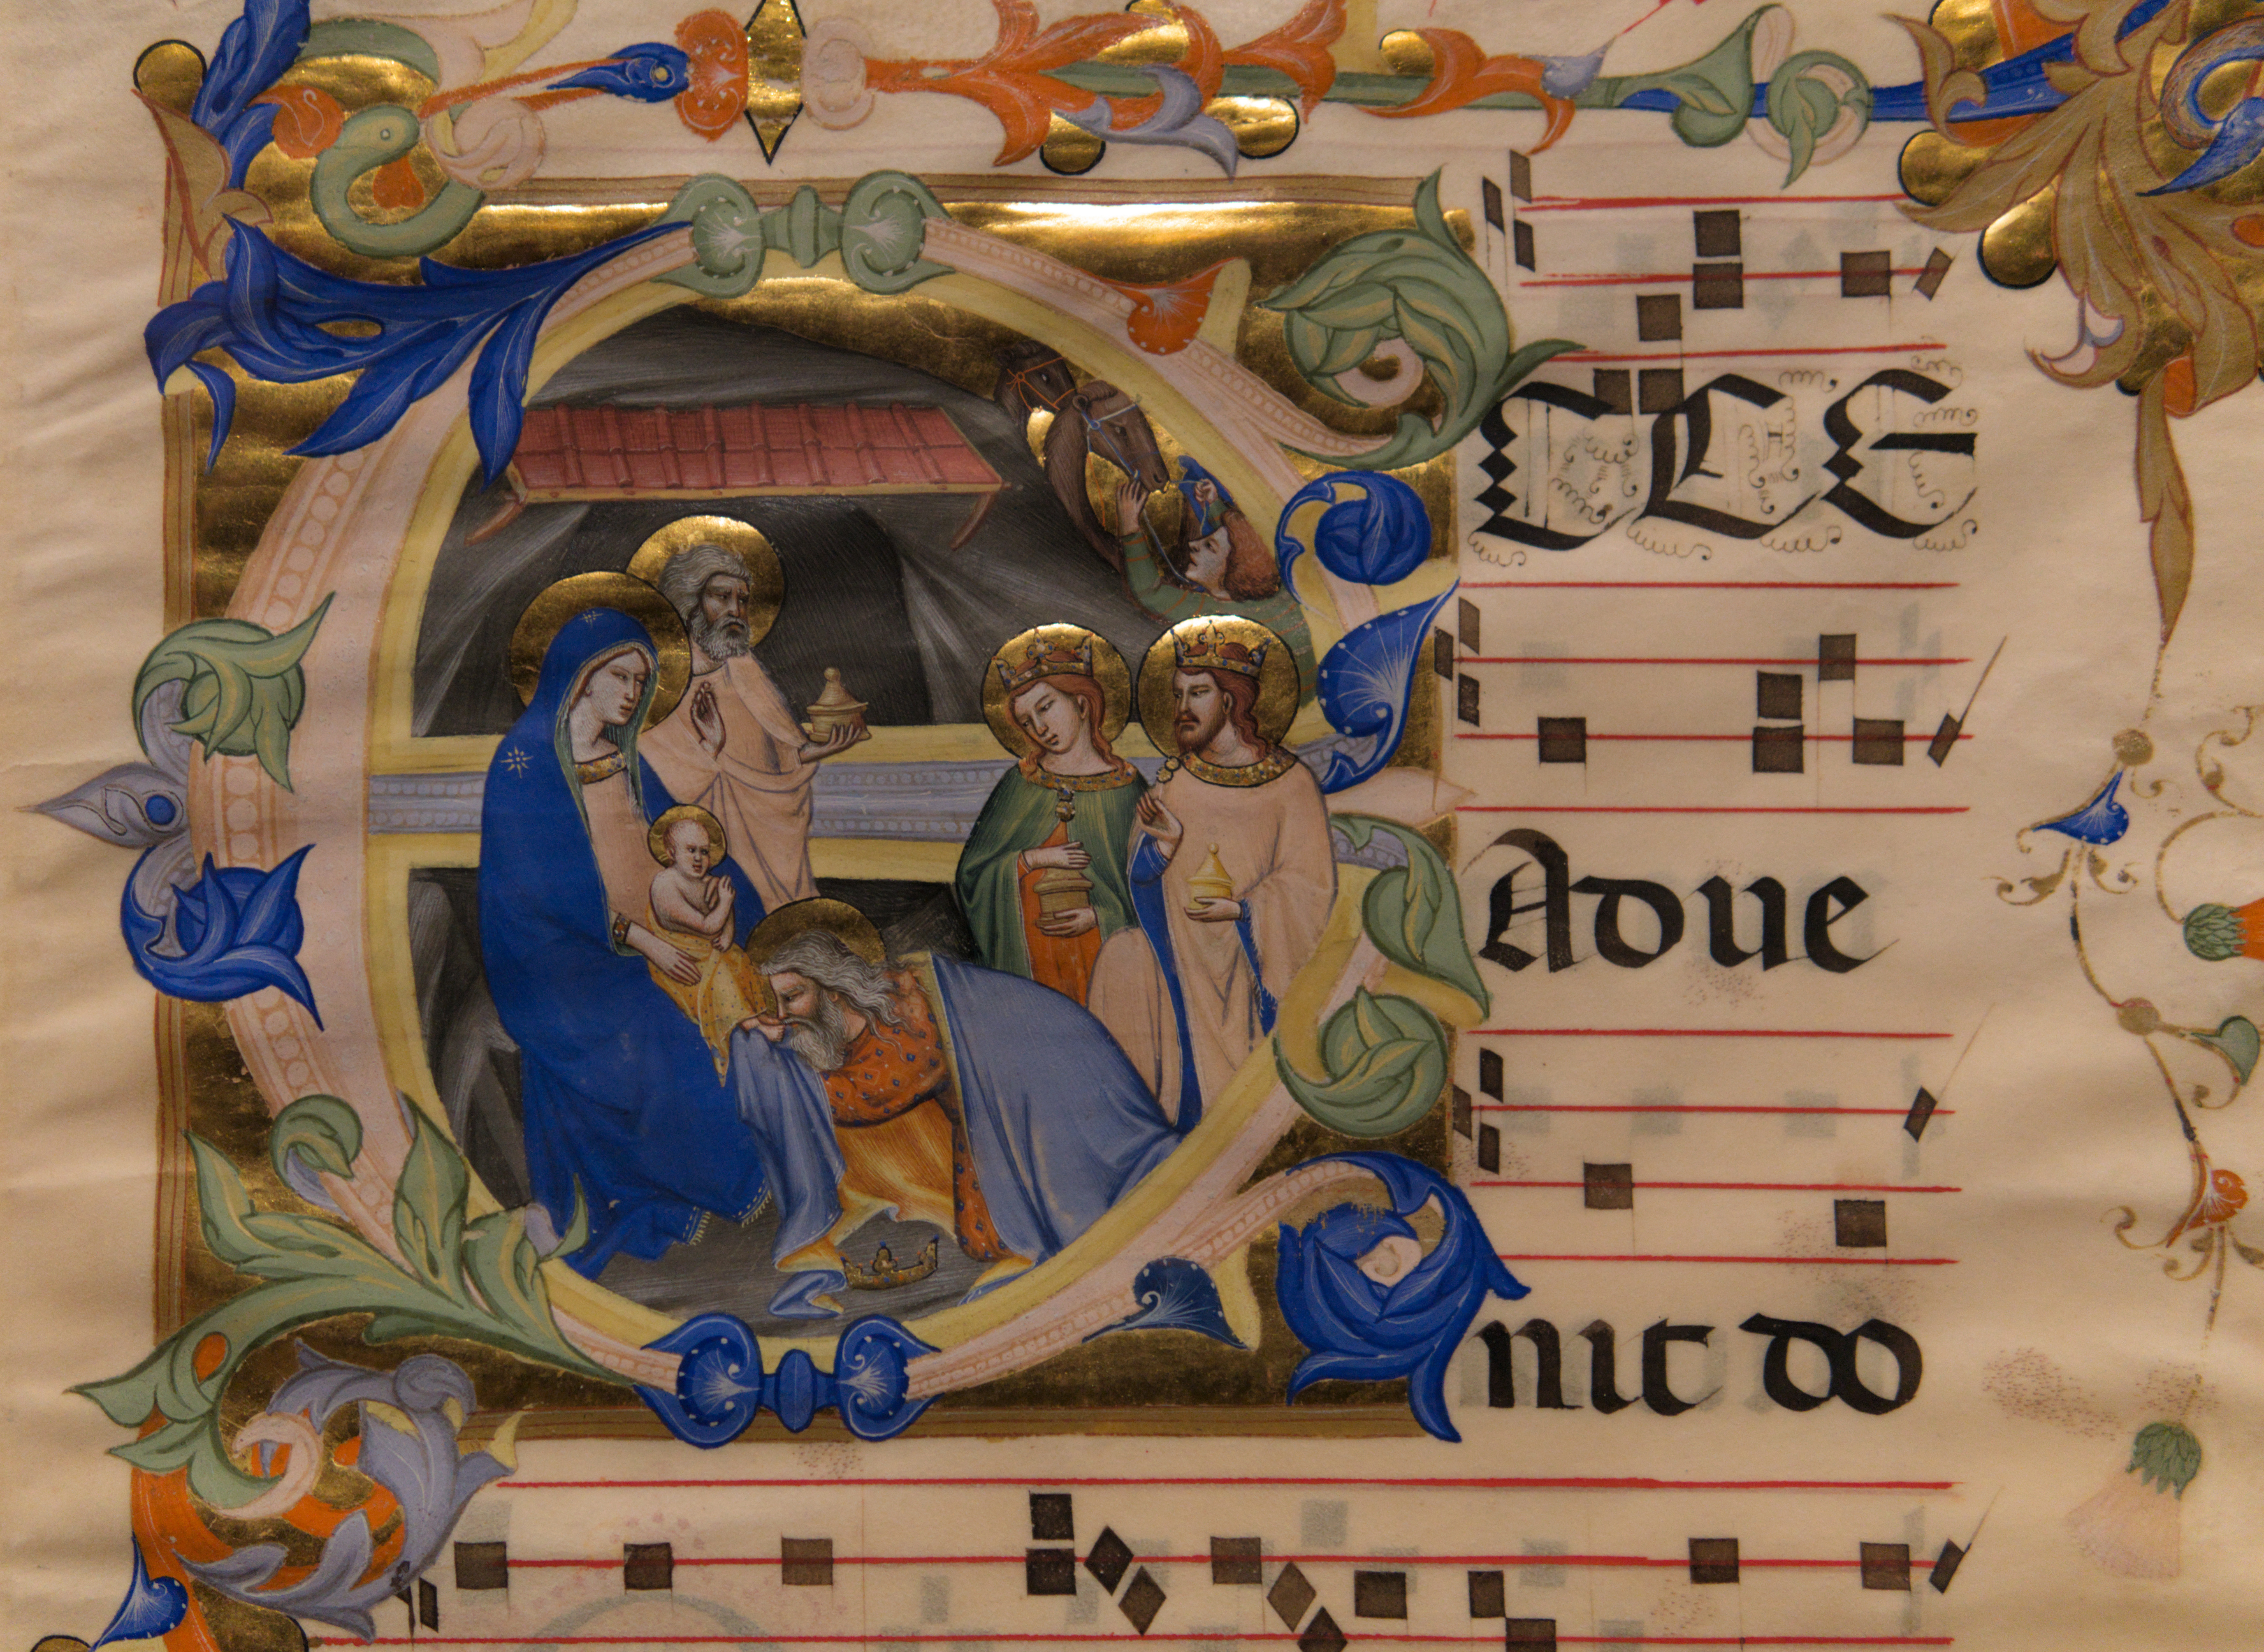 ECCE
Adue
nit do